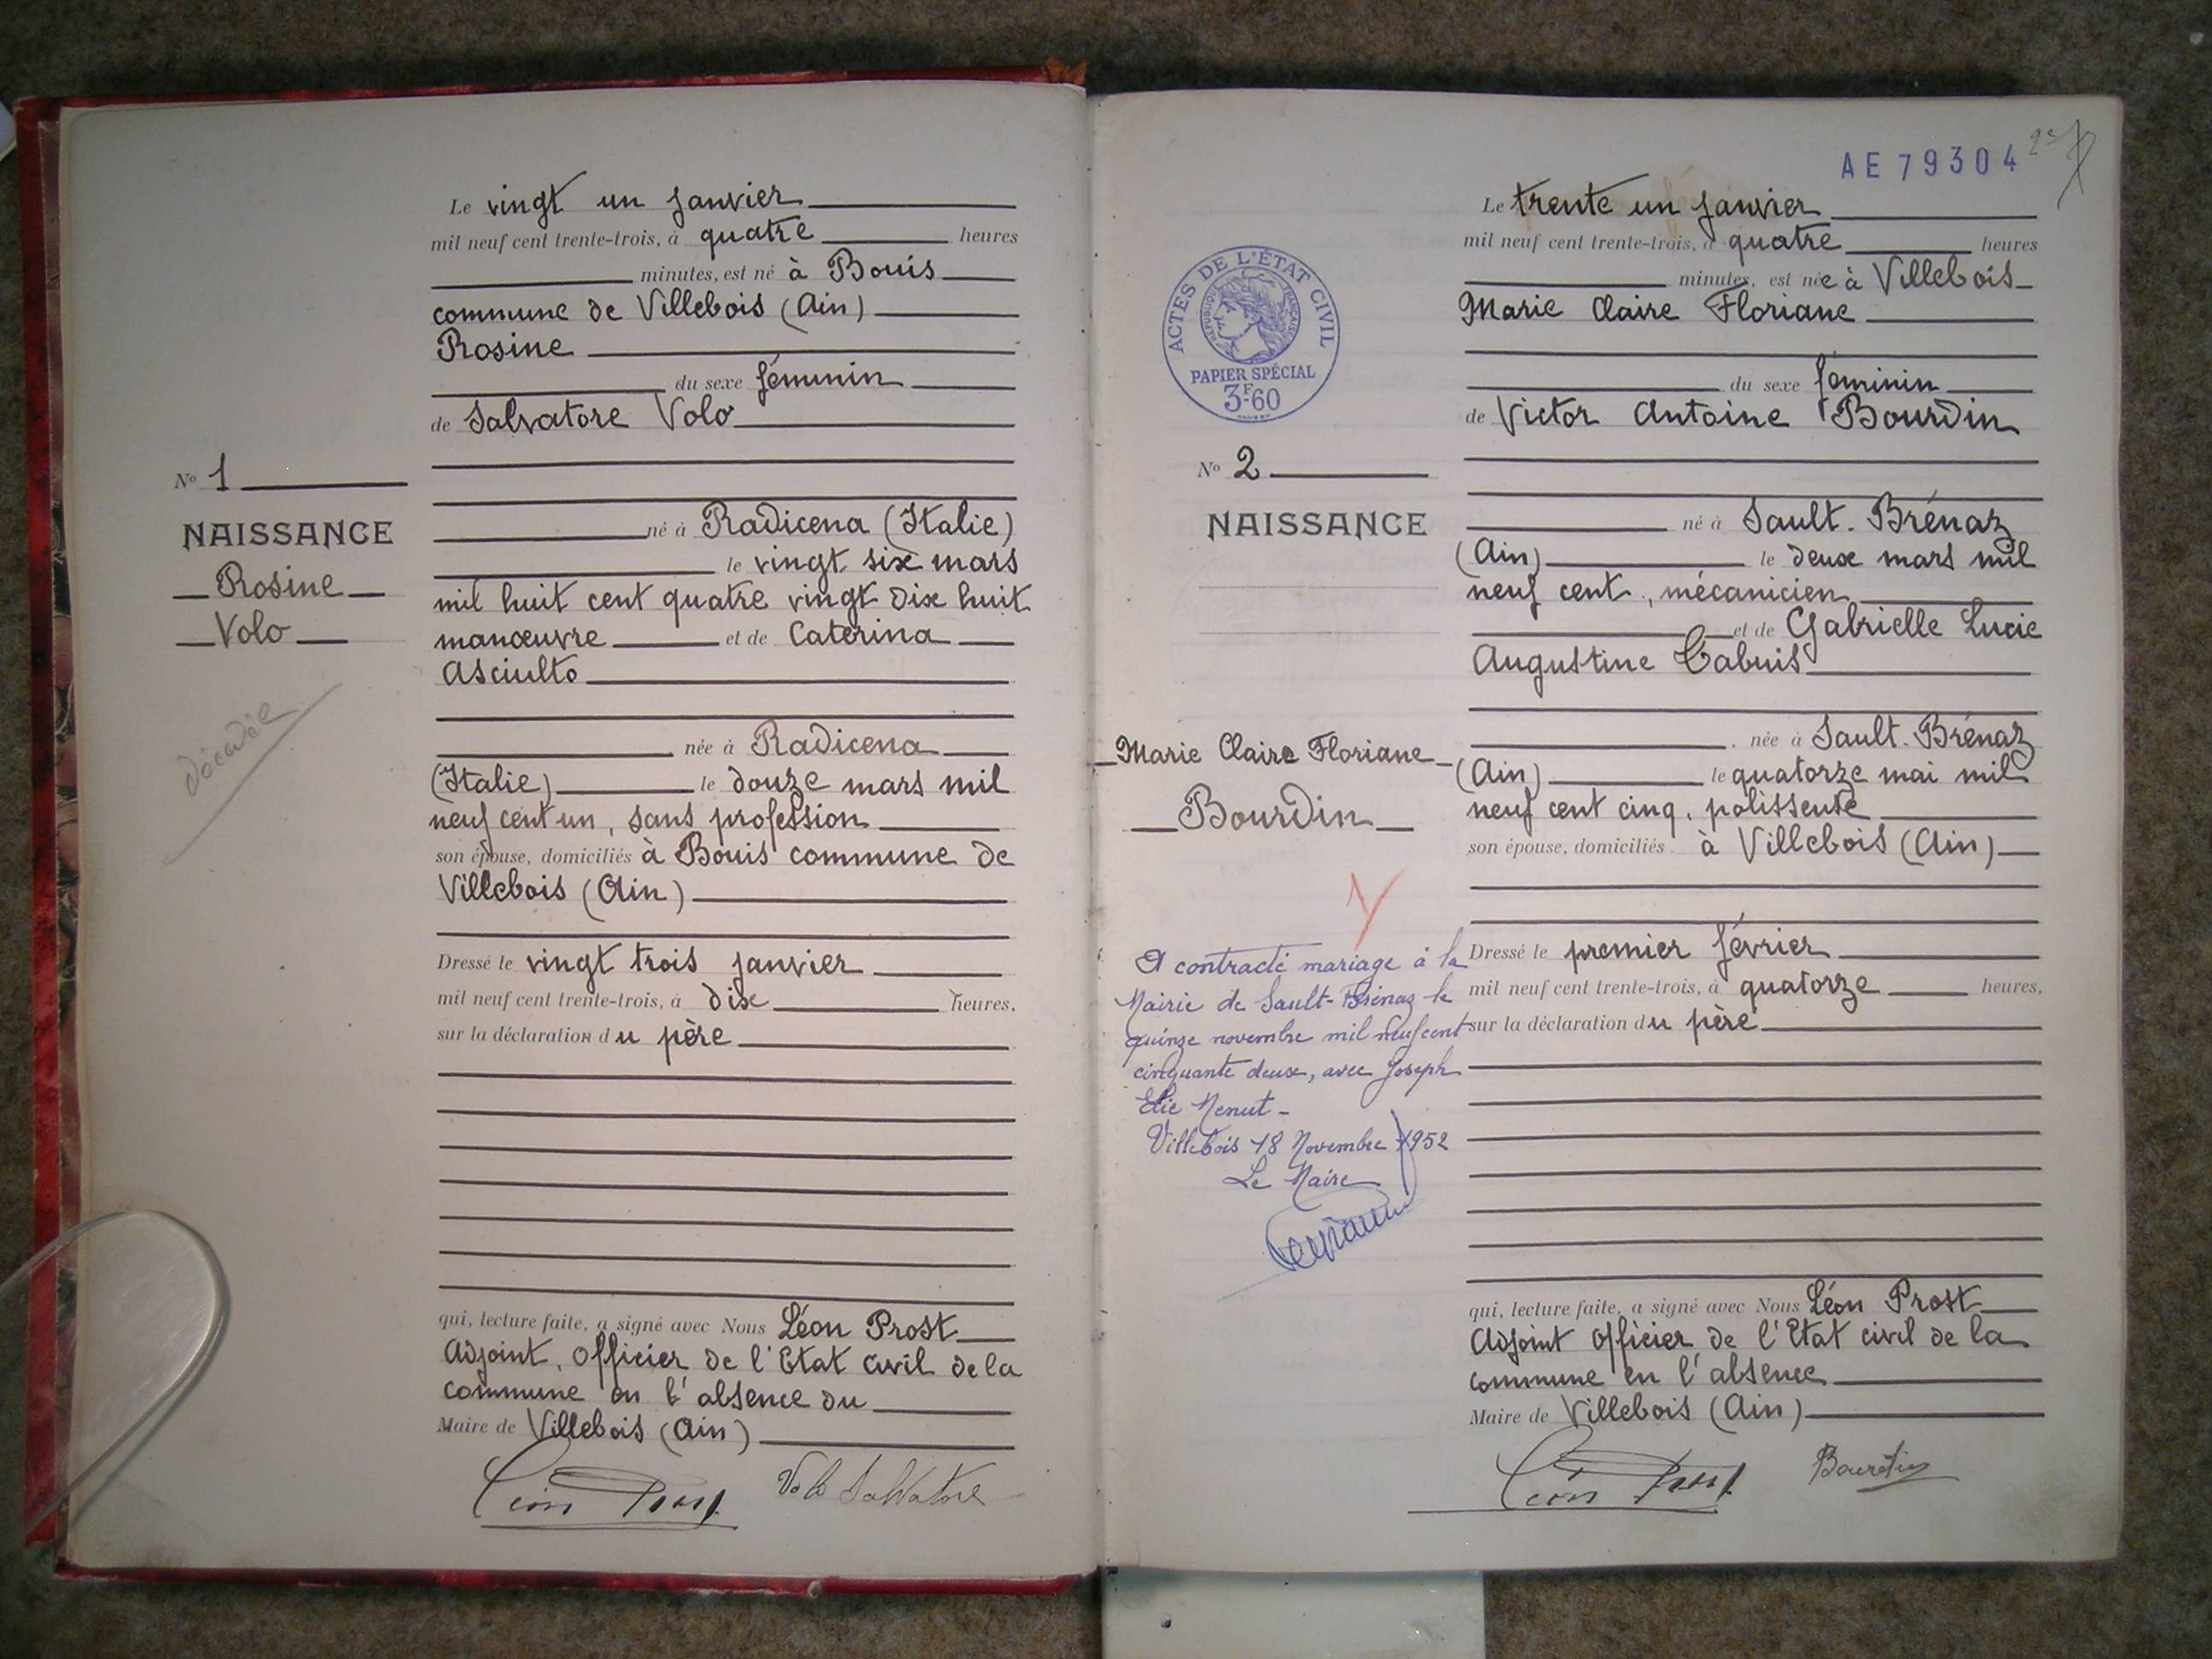 Le vingt un janvier
mil neuf cent trente-trois, à quatre heures
minutes, est né à Bouis
commune de Villebois (Ain)
Rosine
du sexe féminin
de Salvatore Volo
né à Radicena (Italie)
le vingt six mars
mil huit cent quatre vingt dix huit
manœuvre et de Caterina
Asciulto
née à Radicena
(Italie) le douze mars mil
neuf cent un, sans profession
son épouse, domiciliés à Bouis commune de
Villebois (Ain)
Dressé le vingt trois janvier
mil neuf cent trente-trois, à dix heures,
sur la déclaration du père
qui, lecture faite, a signé avec Nous Léon Prost
Adjoint, officier de l'Etat civil de la
commune en l'absence du
Maire de Villebois (Ain)
Léon Prost Volo Salvatore
No 1
NAISSANCE
Rosine
Volo
décédée
AE 79304
2e
Le trente un janvier
mil neuf cent trente-trois, à quatre heures
minutes, est née à Villebois
Marie Claire Floriane
du sexe féminin
de Victor Antoine Bourdin
né à Sault-Brénaz
(Ain) le deux mars mil
neuf cent, mécanicien
et de Gabrielle Lucie
Augustine Cabuis
née à Sault-Brénaz
(Ain) le quatorze mai mil
neuf cent cinq, polisseuse
son épouse, domiciliés à Villebois (Ain)
Dressé le premier février
mil neuf cent trente-trois, à quatorze heures,
sur la déclaration du père
qui, lecture faite, a signé avec Nous Léon Prost
Adjoint officier de l'Etat civil de la
commune en l'absence
Maire de Villebois (Ain)
Léon Prost Bourdin
ACTES DE L'ÉTAT CIVIL
RÉPUBLIQUE FRANÇAISE
PAPIER SPÉCIAL
3F60
No 2
NAISSANCE
Marie Claire Floriane
Bourdin
A contracté mariage à la
Mairie de Sault-Brénaz le
quinze novembre mil neuf cent
cinquante deux, avec Joseph
Elie Menut -
Villebois 18 Novembre 1952
Le Maire